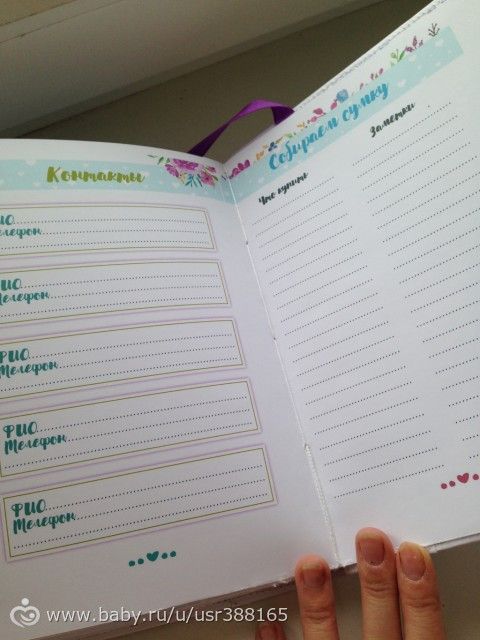 Контакты
ФИО
Телефон
ФИО
Телефон
ФИО
Телефон
ФИО
Телефон
ФИО
Телефон
Собираем сумку
Что купить
Заметки
www.baby.ru/u/usr388165